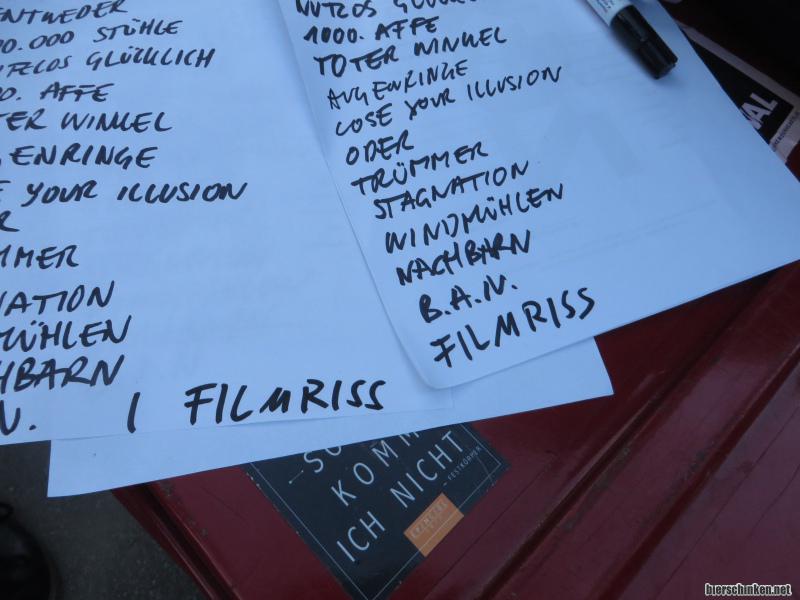 ENTWEDER
00.000 STÜHLE
TZLOS GLÜCKLICH
0. AFFE
TER WINKEL
GENRINGE
E YOUR ILLUSION
R
MMER
NATION
MÜHLEN
HBARN
N. / FILMRISS
NUTZLOS GLÜCK
1000. AFFE
TOTER WINKEL
AUGENRINGE
LOSE YOUR ILLUSION
ODER
TRÜMMER
STAGNATION
WINDMÜHLEN
NACHBARN
B.A.N.
FILMRISS
SO
KOMM
ICH NICHT
FESTKÖRPER
AL
bierschinken.net